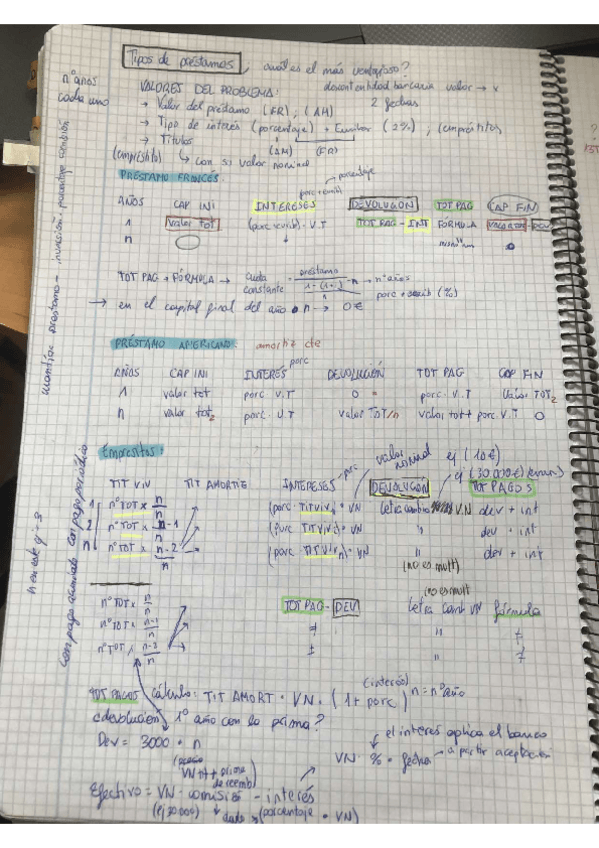 Tipos de préstamos, ¿cuál es el más ventajoso?
nº años cada uno
VALORES DEL PROBLEMA:
descont entidad bancaria valor → x
2 fechas
→ Valor del préstamo (FR), (AM)
→ Tipo de interés (porcentaje) + Euribor (2%), (empréstitos)
→ Títulos (AM) (FR)
(empréstito) ↳ con su valor nominal
PRÉSTAMO FRANCÉS
porcentaje
porc + eurib
AÑOS CAP INI INTERESES DEVOLUCIÓN TOT PAG CAP FIN
1 Valor tot (porc + eurib) · V.T TOT PAG - INT FÓRMULA VALOR TOT - DEV
n
0
TOT PAG → FÓRMULA → cuota constante = préstamo
n → nº años
porc + eurib (%)
→ en el capital final del año n → 0€
PRÉSTAMO AMERICANO: amortiz cte
porc
AÑOS CAP INI INTERÉS DEVOLUCIÓN TOT PAG CAP FIN
1 valor tot porc · V.T 0 porc · V.T Valor TOT2
n valor tot2 porc · V.T valor TOT/n valor tot + porc V.T 0
Empréstitos:
valor nominal ej (10€)
ej (30.000€)
TIT VIV TIT AMORTIZ INTERESES porc DEVOLUCIÓN TOT PAGOS
1 nº TOT x n/n (porc · TIT VIV1) · VN letra cambio V.N dev + int
2 nº TOT x n-1/n (porc TIT VIV2) · VN " dev + int
n nº TOT x n-2/n (porc TIT VIVn) · VN " dev + int
(no es mult)
(no es mult)
nº TOT x n/n TOT PAG - DEV letra camb VN fórmula
nº TOT x n-1/n " "
nº TOT x n-2/n " "
(interés)
TOT PAGOS cálculo: TIT AMORT · VN · (1 + porc)^n = nº año
¿devolución 1º año con la prima?
Dev = 3000 · n
(precio VN nt + prima de reemb)
el interés aplica el banco
VN · % · fechas → a partir aceptación
Efectivo = VN - comisión - interés
(ej 20000) ↓ dado (porcentaje · VN)
cuantía préstamo - inversión - porcentaje comisión
n en este ej → 3
con pago acumulado con pago periódico